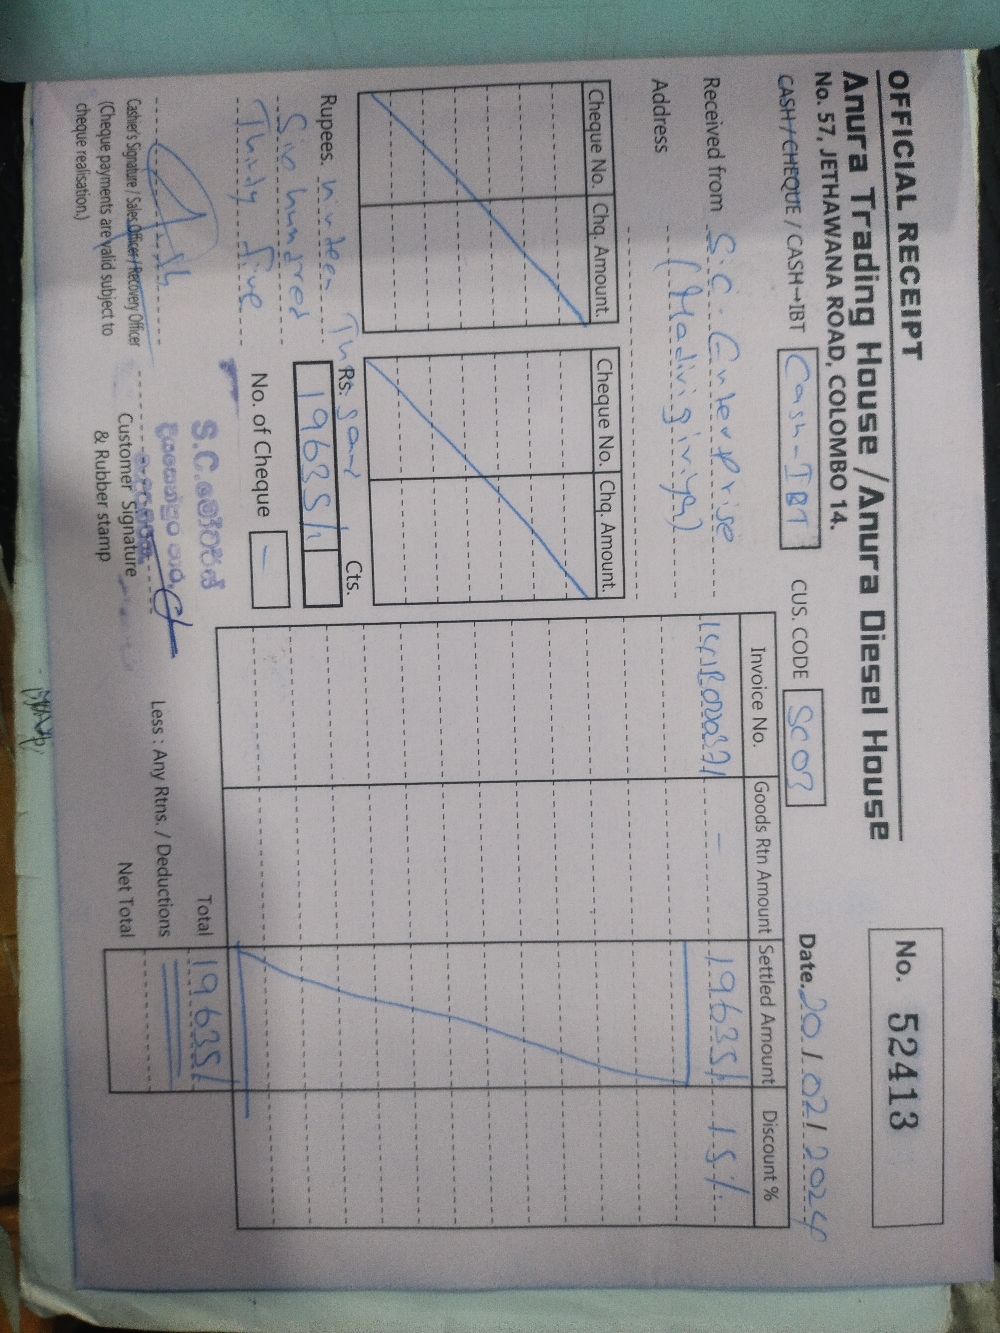 OFFICIAL RECEIPT
No. 52413
Anura Trading House / Anura Diesel House
No. 57, JETHAWANA ROAD, COLOMBO 14.
CASH / CHEQUE / CASH→IBT Cash-IBT CUS. CODE SC03 Date. 20/02/2024
Received from S.C. Enterprise
Address (Madirigiriya)
Cheque No. Chq. Amount. Cheque No. Chq. Amount.
Invoice No. Goods Rtn Amount Settled Amount Discount %
- 19635/ 15%
Rupees. ninteen Thousand
Six hundred
Thirty five
Rs. Cts.
19635/
No. of Cheque -
Total 19635/
Less : Any Rtns. / Deductions
Net Total
S.C.
Cashier's Signature / Sales Officer / Recovery Officer
(Cheque payments are valid subject to
cheque realisation.)
Customer Signature
& Rubber stamp